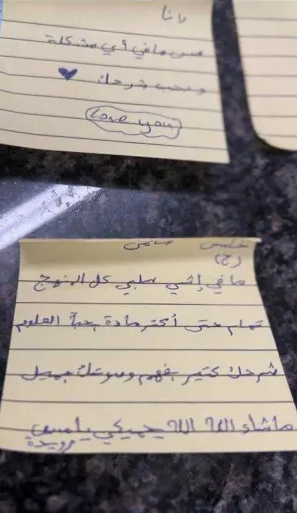 رانا
مس ما في أي مشكلة
وبحب شرحك
Love you
خامس
(ج)
ما في إشي سلبي كل المنهج
تمام حتى أكتر مادة بحبها العلوم
شرحك كتير بفهم وصوتك جميل
ماشاء الله الله يحميكي يا مس
رويدة